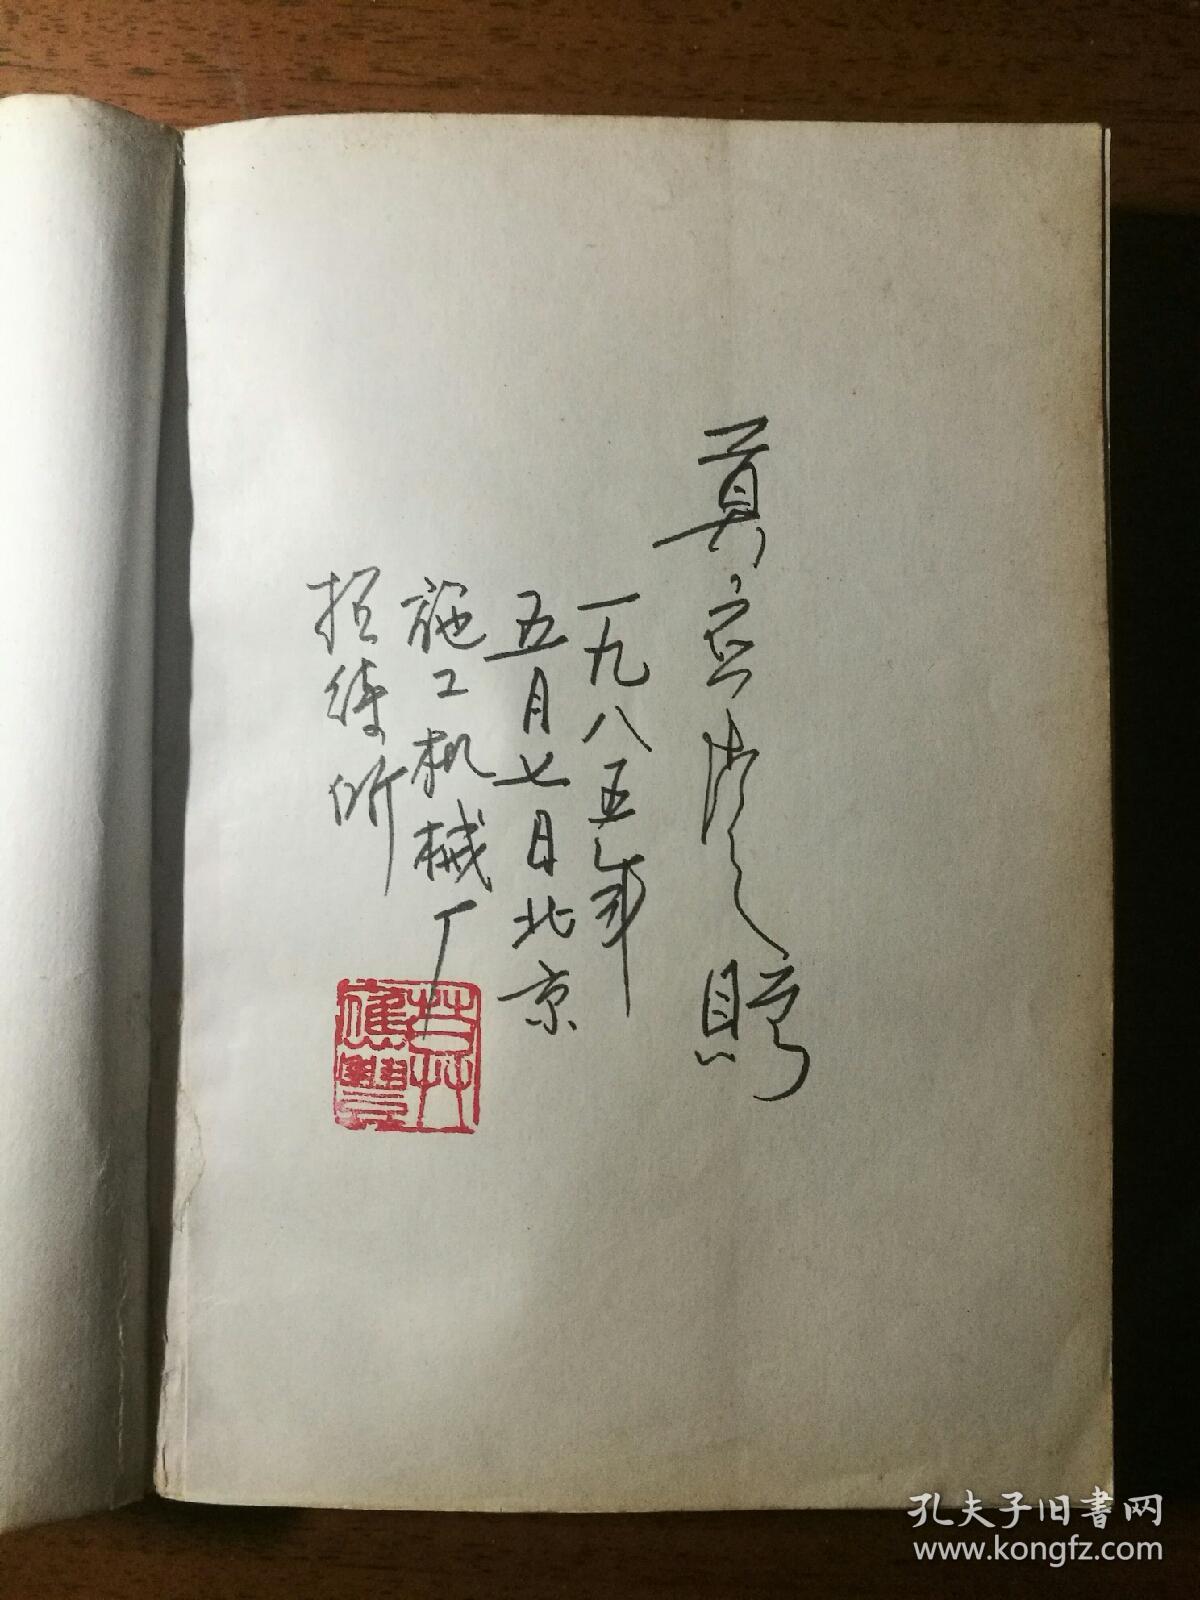 真言法师赐
一九八五年
五月七日北京
施工机械厂
招待所
孔夫子旧书网
www.kongfz.com